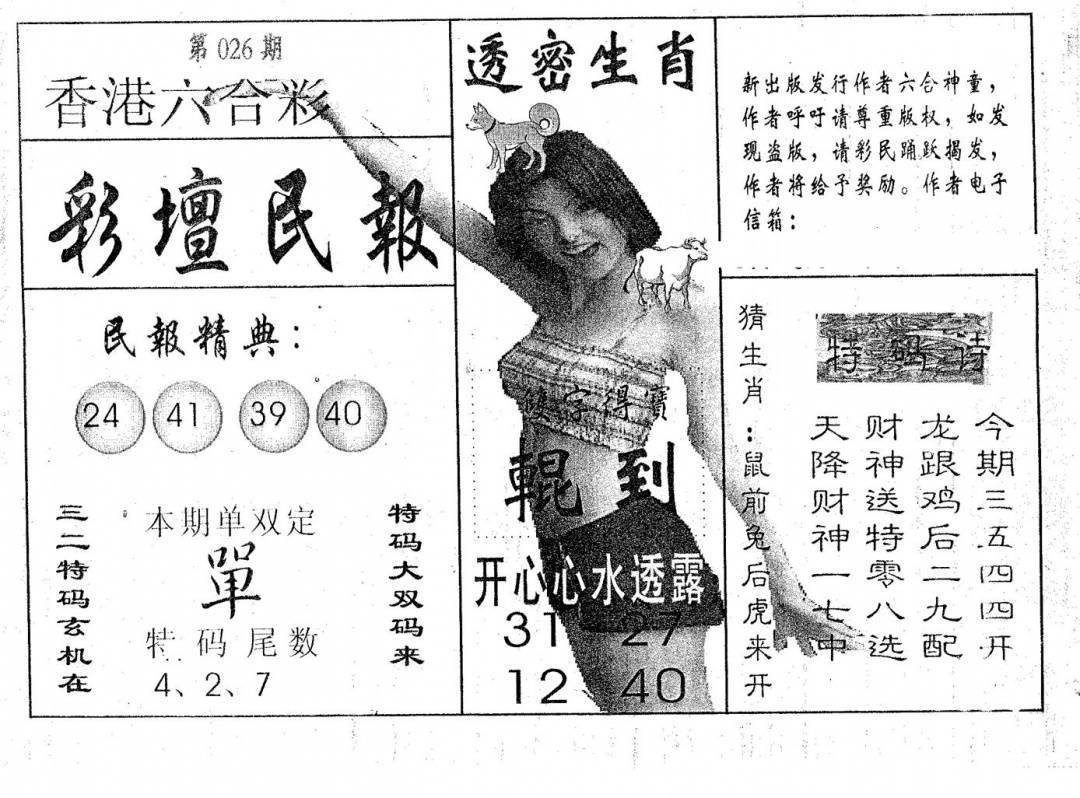 第026期
香港六合彩
彩壇民報
民報精典：
24 41 39 40
三二特码玄机在
本期单双定
單
特码尾数
4、2、7
特码大双码来
透密生肖
雙字得寶
輥到
开心心水透露
31 27
12 40
新出版发行作者六合神童，
作者呼吁请尊重版权，如发
现盗版，请彩民踊跃揭发，
作者将给予奖励。作者电子
信箱：
猜生肖：鼠前兔后虎来开
特码诗
今期三五四四开
龙跟鸡后二九配
财神送特零八选
天降财神一七中